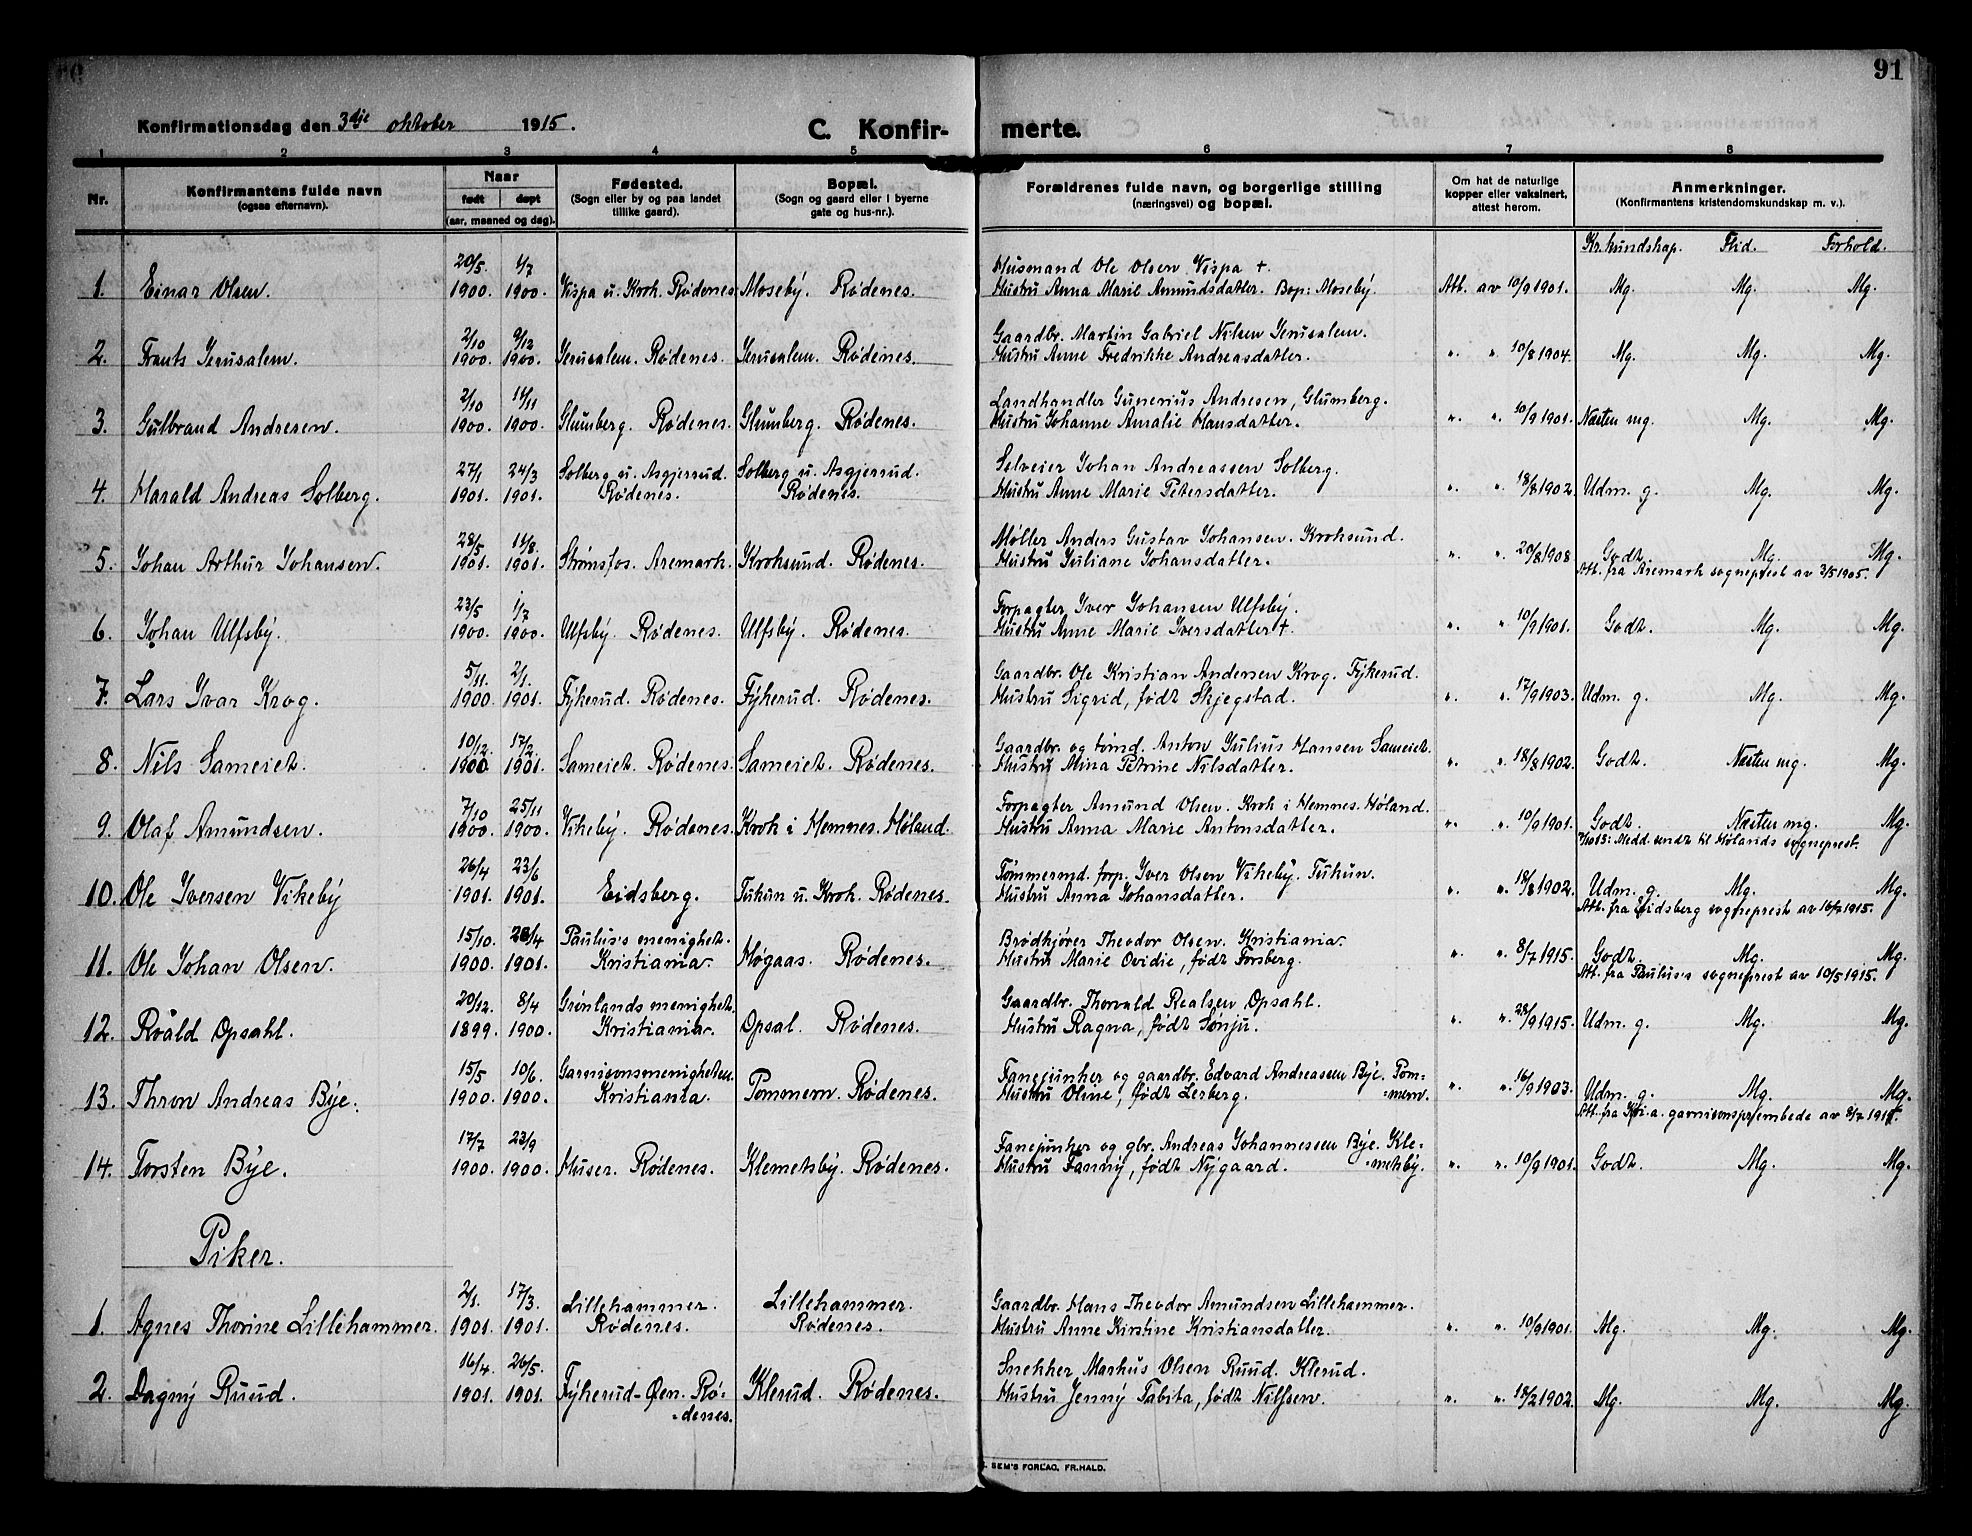 91
Konfirmationsdag den 3dje oktober 1915.
C. Konfirmerte.
1 2 3 4 5 6 7 8
Nr. Konfirmantens fulde navn (ogsaa efternavn). Naar født døpt (aar, maaned og dag). Fødested. (Sogn eller by og paa landet tillike gaard). Bopæl. (Sogn og gaard eller i byerne gate og hus-nr.). Forældrenes fulde navn, og borgerlige stilling (næringsvei) og bopæl. Om hat de naturlige kopper eller vaksinert, attest herom. Anmerkninger. (Konfirmantens kristendomskundskap m. v.).
Kr.kundskap. Flid. Forhold.
20/5. 1/7 Husmand Ole Olsen Vispa +.
1. Einar Olsen. 1900. 1900. Vispa u. Krok. Rødenes. Moseby. Rødenes. Hustru Anna Marie Amundsdatter. Bop: Moseby. Att. av 10/9 1901. Mg. Mg. Mg.
2/10 9/12 Gaardbr. Martin Gabriel Nilsen Jerusalem.
2. Frants Jerusalem. 1900. 1900. Jerusalem. Rødenes. Jerusalem. Rødenes. Hustru Anne Fredrikke Andreasdatter. " " 10/8 1904. Mg. Mg. Mg.
2/10 11/11 Landhandler Gunerius Andresen, Glumberg.
3. Gulbrand Andresen. 1900. 1900. Glumberg. Rødenes. Glumberg. Rødenes. Hustru Johanne Amalie Hansdatter. " " 10/9 1901. Næsten mg. Mg. Mg.
27/1 24/3 Solberg u. Asgjerrud. Solberg u. Asgjerrud. Selveier Johan Andreassen Solberg.
4. Harald Andreas Solberg. 1901. 1901. Rødenes. Rødenes. Hustru Anne Marie Petersdatter. " " 18/8 1902. Udm. g. Mg. Mg.
28/5 11/8. Møller Anders Gustav Johansen. Kroksund.
5. Johan Arthur Johansen. 1901. 1901. Strømsfos. Aremark. Kroksund. Rødenes. Hustru Juliane Johansdatter. " " 20/8 1908 Godt. Mg. Mg.
Att. fra Aremark sogneprest av 2/5 1905.
23/5 1/7 Forpagter Iver Johansen Ulfsby.
6. Johan Ulfsby. 1900. 1900. Ulfsby. Rødenes. Ulfsby. Rødenes. Hustru Anne Marie Iversdatter +. " " 10/9 1901. Godt. Mg. Mg.
5/11. 2/1. Gaardbr. Ole Kristian Andersen Krog. Fykerud.
7. Lars Ivar Krog. 1900. 1901. Fykerud. Rødenes. Fykerud. Rødenes. Hustru Sigrid, født Skjegstad. " " 17/9 1903. Udm. g. Mg. Mg.
10/12. 17/2. Gaardbr. og tømd. Anton Julius Hansen Sameiet.
8. Nils Sameiet. 1900 1901. Sameiet. Rødenes. Sameiet. Rødenes. Hustru Mina Petrine Nilsdatter. " " 18/8 1902. Godt. Næsten mg. Mg.
7/10 25/11 Forpagter Amund Olsen. Krok i Hemnes. Høland.
9. Olaf Amundsen. 1900. 1900. Vikeby. Rødenes. Krok i Hemnes. Høland. Hustru Anna Marie Antonsdatter. " " 10/9 1901. Godt. Næsten mg. Mg.
Medd. sendt til Hølands sogneprest.
26/4 23/6 Tømmermd. forp. Iver Olsen Vikeby. Tukun.
10. Ole Iversen Vikeby 1901. 1901. Eidsberg. Tukun u. Krok. Rødenes. Hustru Anna Johansdatter. " " 18/8 1902. Udm. g. Mg. Mg.
Att. fra Eidsberg sogneprest av 16/7 1915.
15/10. 28/4 Paulus's menighet. Brødkjører Theodor Olsen. Kristiania.
11. Ole Johan Olsen. 1900. 1901. Kristiania. Høgaas. Rødenes. Hustru Marie Ovidie, født Forsberg. " " 8/7 1915. Godt. Mg. Mg.
Att. fra Paulus's sogneprest av 10/5 1915.
20/12. 8/4 Grønlands menighet. Gaardbr. Thorvald Realsen Opsahl.
12. Roald Opsahl. 1899. 1900. Kristiania. Opsal. Rødenes. Hustru Ragna, født Sønju. " " 28/9 1915. Udm. g. Mg. Mg.
15/5 10/6. Garnisonsmenigheten. Fanejunker og gaardbr. Edvard Andreassen Bye. Pom=
13. Thron Andreas Bye. 1900. 1900. Kristiania. Pommern. Rødenes. Hustru Oline, født Lerberg. =mern. " " 16/9 1903. Udm. g. Mg. Mg.
Att. fra Kr.a. garnisonsprembede av 8/7 1915.
17/7 23/9 Fanejunker og gbr. Andreas Johannessen Bye. Kle=
14. Torsten Bye. 1900. 1900. Huser. Rødenes. Klemetsby. Rødenes. Hustru Fanny, født Nygaard. =metsby. " " 10/9 1901. Godt. Mg. Mg.
Piker.
2/1. 17/3. Lillehammer. Lillehammer. Gaardbr. Hans Theodor Amundsen Lillehammer.
1. Agnes Thorine Lillehammer. 1901. 1901. Rødenes. Rødenes. Hustru Anne Kirstine Kristiansdatter. " " 10/9 1901. Mg. Mg. Mg.
16/4. 26/5. Snekker Markus Olsen Ruud. Klerud.
2. Dagny Ruud. 1901. 1901. Fykerud-Øen. Rø= Klerud. Rødenes. Hustru Jenny Tabita, født Nilssen. " " 18/2 1902. Mg. Mg. Mg.
=denes.
SEM'S FORLAG, FR.HALD.